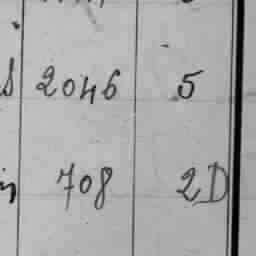 2046 5
708 2D